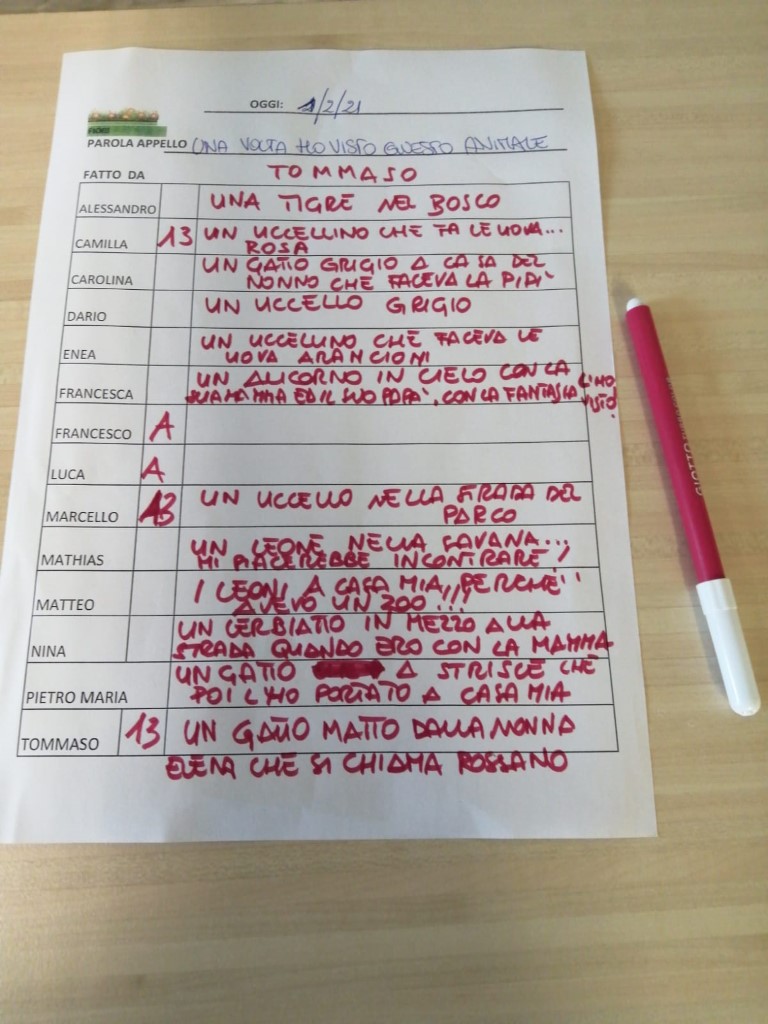 OGGI: 1/2/21
PAROLA APPELLO UNA VOLTA HO VISTO QUESTO ANIMALE
FATTO DA TOMMASO
ALESSANDRO UNA TIGRE NEL BOSCO
CAMILLA 13 UN UCCELLINO CHE FA LE UOVA...
ROSA
CAROLINA UN GATTO GRIGIO A CASA DEL
NONNO CHE FACEVA LA PIPI'
DARIO UN UCCELLO GRIGIO
ENEA UN UCCELLINO CHE FACEVA LE
UOVA ARANCIONI
FRANCESCA UN ALICORNO IN CIELO CON LA
SUA MAMMA ED IL SUO PAPA', CON LA FANTASIA L'HO
VISTO!
FRANCESCO A
LUCA A
MARCELLO 13 UN UCCELLO NELLA STRADA DEL
PARCO
MATHIAS UN LEONE NELLA SAVANA...
MI PIACEREBBE INCONTRARE!
MATTEO I LEONI A CASA MIA, PERCHE'
AVEVO UN ZOO!!!
NINA UN CERBIATTO IN MEZZO ALLA
STRADA QUANDO ERO CON LA MAMMA
PIETRO MARIA UN GATTO A STRISCE CHE
POI L'HO PORTATO A CASA MIA
TOMMASO 13 UN GATTO MATTO DALLA NONNA
ELENA CHE SI CHIAMA ROSSANO
GIOTTO